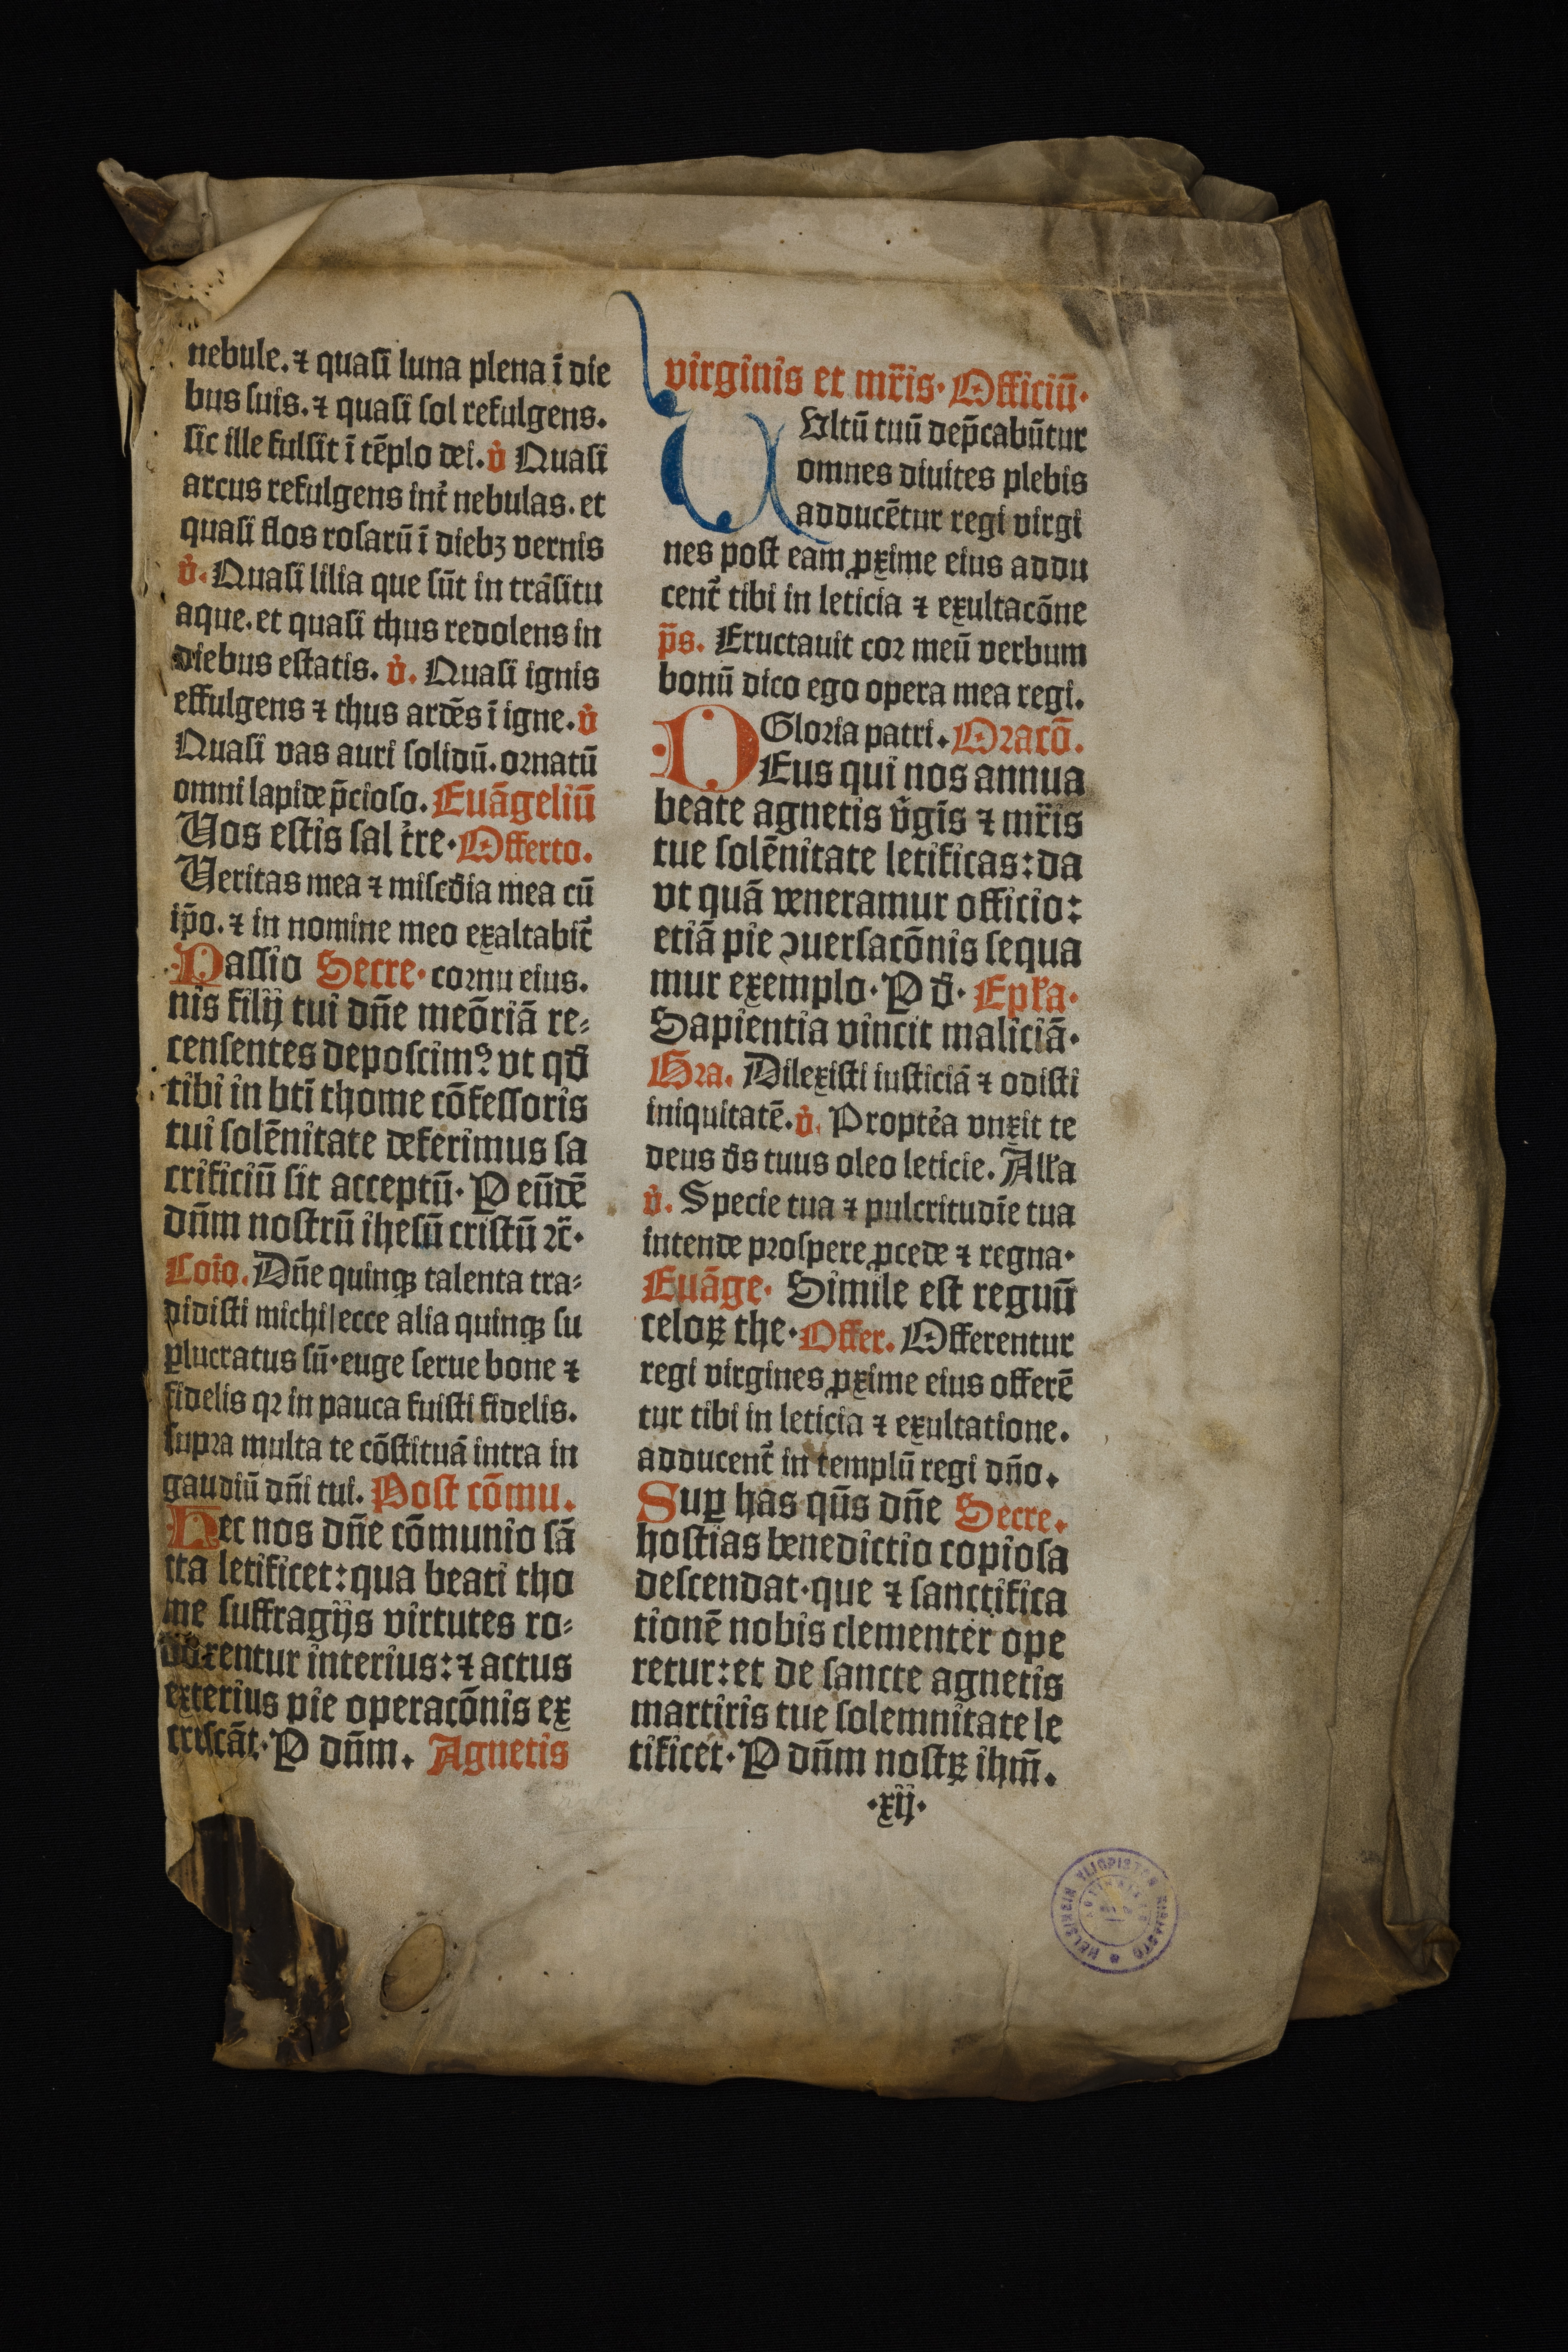 nebule. ⁊ quaſi luna plena ī die
bus ſuis. ⁊ quaſi ſol refulgens.
ſic ille fulſit ī tēplo dei. v̇ Quaſi
arcus refulgens int̛ nebulas. et
quaſi flos roſarū ī diebꝫ vernis
v̇. Quaſi lilia que ſūt in trāſitu
aque. et quaſi thus redolens in
diebus eſtatis. v̇. Quaſi ignis
effulgens ⁊ thus ardēs ī igne. v̇
Quaſi vas auri ſolidū. ornatū
omni lapide p̄cioſo. Euāgeliū
Vos eſtis ſal t̛re· Offerto.
Veritas mea ⁊ miſcdia mea cū
ip̄o. ⁊ in nomine meo exaltabit̛
Paſſio Secre· cornu eius.
nis filij tui dn̄e meōriā re⸗
cenſentes depoſcimꝰ vt qd̄
tibi in btī thome cōfeſſoris
tui ſolēnitate deferimus ſa
crificiū ſit acceptū· P eūdē
dn̄m noſtrū iheſū criſtū ꝛc̄·
Coīo. Dn̄e quinqꝫ talenta tra⸗
didiſti michi|ecce alia quinqꝫ ſu
ꝑlucratus ſū·euge ſerue bone ⁊
fidelis qꝛ in pauca fuiſti fidelis.
ſupra multa te cōſtituā intra in
gaudiū dn̄i tui. Poſt cōmu.
Hec nos dn̄e cōmunio ſā
cta letificet: qua beati tho
me ſuffragijs virtutes ro⸗
borentur interius: ⁊ actus
exterius pie operacōnis ex
criſcāt. P dn̄m. Agnetis
virginis et mr̄is· Officiū·
VUltū tuū dep̄cabūtur
omnes diuites plebis
adducētur regi virgi
nes poſt eam ꝓxime eius addu
cent̛ tibi in leticia ⁊ exultacōne
p̄s. Eructauit cor meū verbum
bonū dico ego opera mea regi.
Gloria patri. Oracō.
DEus qui nos annua
beate agnetis v̇gīs ⁊ mr̄is
tue ſolēnitate letificas: da
vt quā veneramur officio:
etiā pie ꝯuerſacōnis ſequa
mur exemplo· P d̄· Epl̄a·
Sapientia vincit maliciā·
Gra. Dilexiſti iuſticiā ⁊ odiſti
iniquitatē. v̇. Propt̛ea vnxit te
deus d̄s tuus oleo leticie. All̄a
v̇. Specie tua ⁊ pulcritudīe tua
intende proſpere ꝓcede ⁊ regna·
Euāge· Simile eſt regnū
celoꝝ the· Offer. Offerentur
regi virgines ꝓxime eius offerē
tur tibi in leticia ⁊ exultatione.
adducent̛ in templū regi dn̄o.
Suꝑ has qn̄s dn̄e Secre.
hoſtias benedictio copioſa
deſcendat·que ⁊ ſanctifica
tionē nobis clementer ope
retur: et de ſancte agnetis
martiris tue ſolemnitate le
tificet· P dn̄m noſtꝝ ihm̄.
·xij·
HELSINGIN YLIOPISTON KIRJASTO